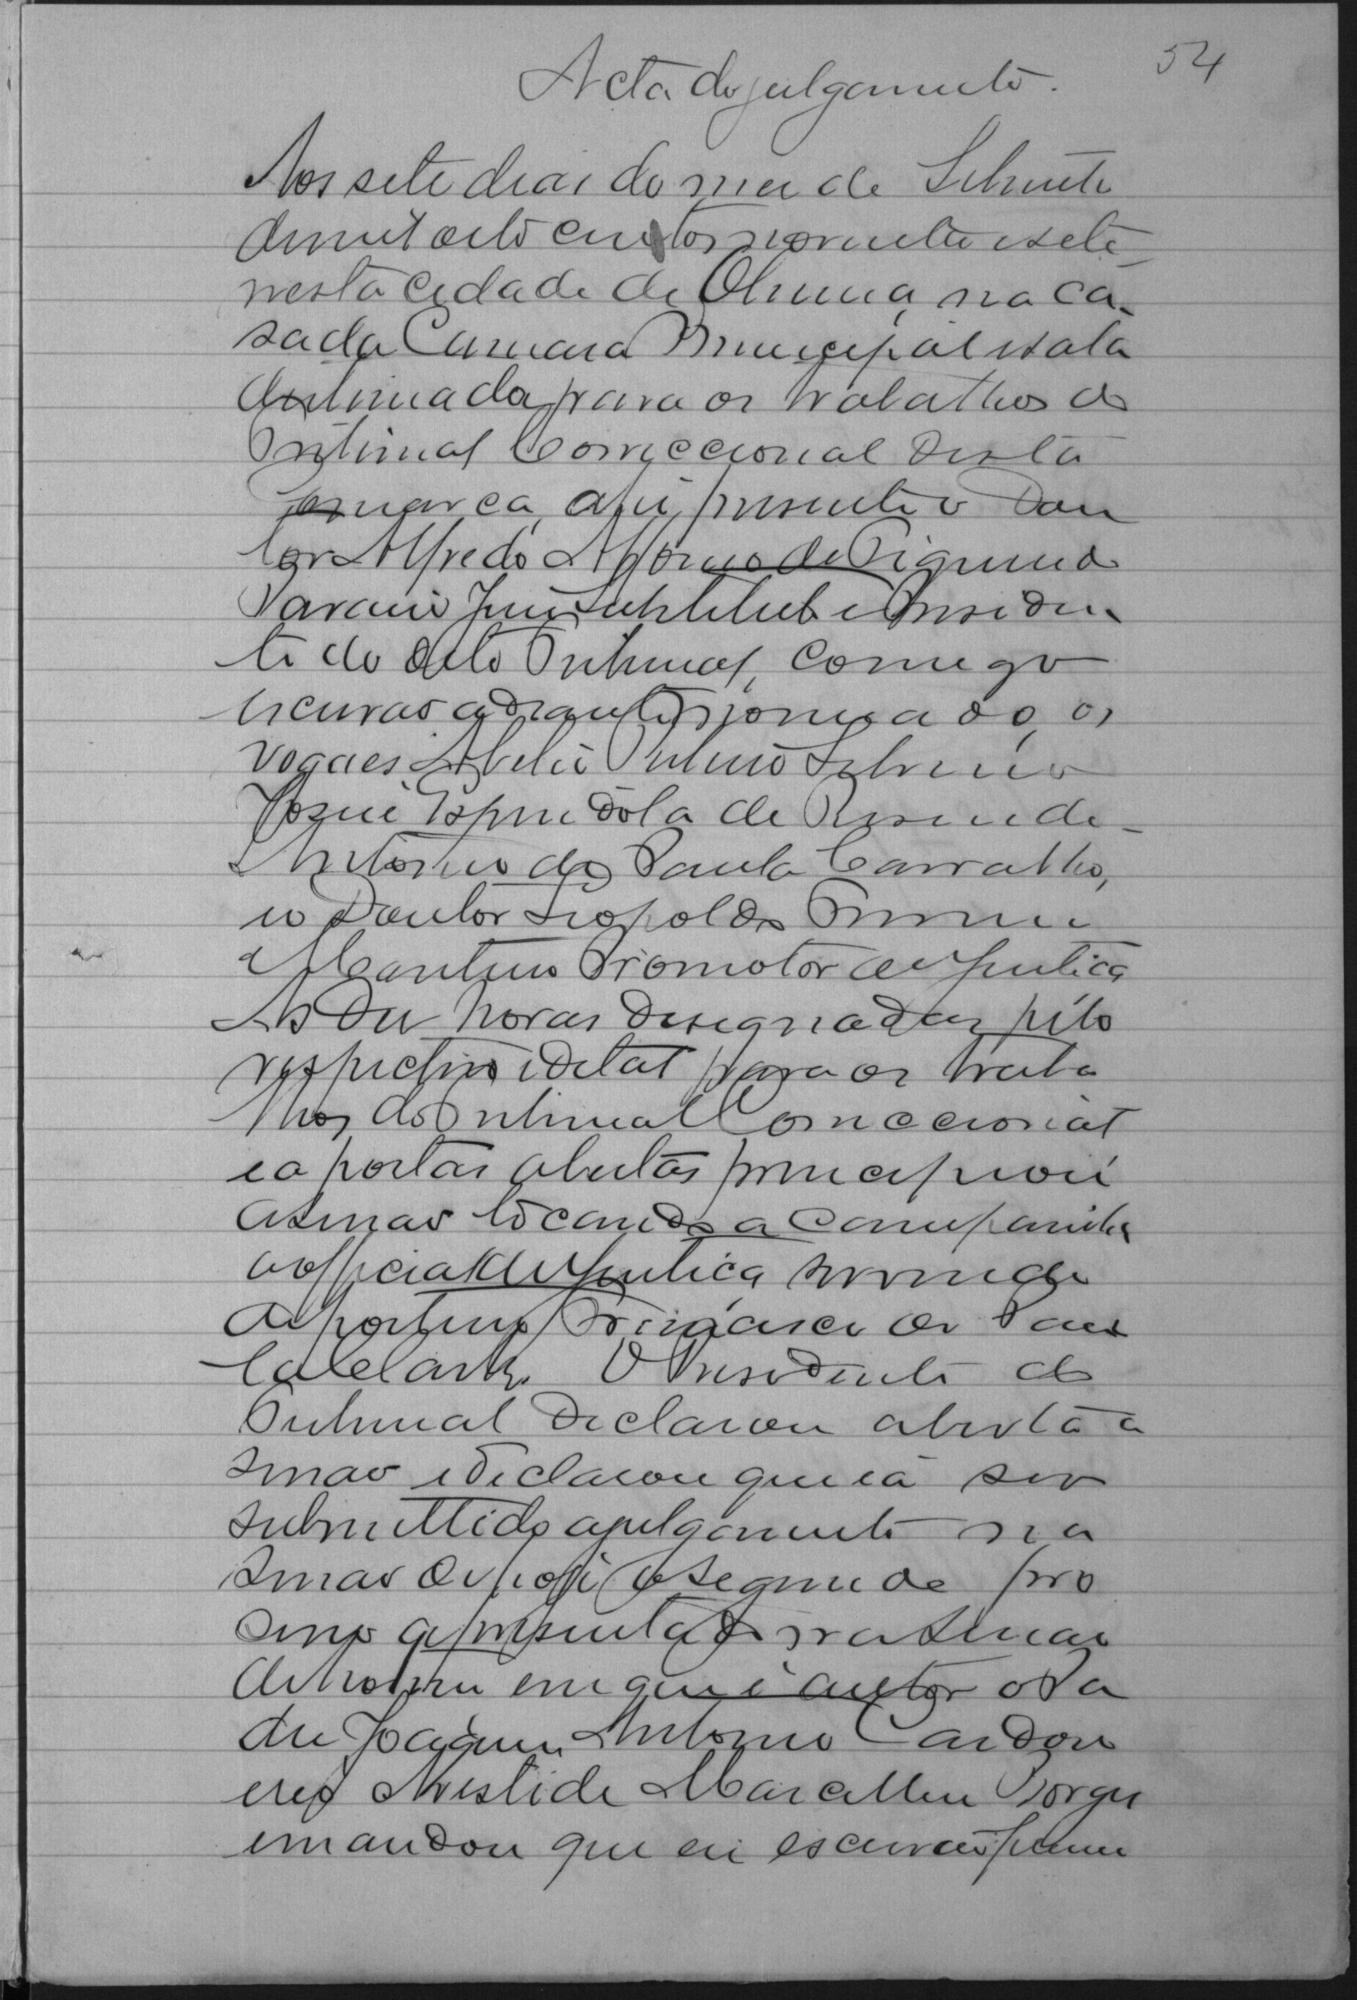 54
Acta do julgamento.
Aos sete dias do mez de Setembro
de mil oito centos noventa e sete
nesta cidade de na ca-
sa da Camara Municipal e sala
destinada para os trabalhos do
Tribunal Correccional desta
Comarca, ahi presente o Dou
tor Alfredo Affonso de
Juiz Substituto e Presiden
te do dito Tribunal, comigo
escrivão adiante nomeado, os
vogaes
José Espindola de Resende
Antonio de Paula Carvalho,
e o Doutor Leopoldo
Promotor de Justiça
As dez horas designadas pelo
respectivo edital para os traba
lhos do Tribunal Correccional
e a portas abertas principiou
a sessão tocando a campainha
o official de Justiça servindo
de porteiro de Pau
la O Presidente do
Tribunal declarou aberta a
sessão e declarou que ia ser
submettido a julgamento na
sessão de hoje o segundo pro
cesso apresentado na sessão
de hontem em que é autor o Pa
dre Joaquim Antonio Cardoso
e reo Aristide Marcellin Borges
e mandou que eu escrivão